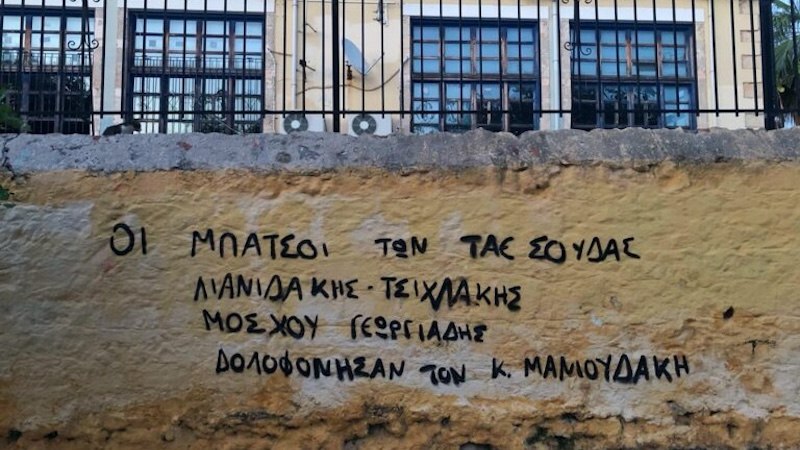 ΟΙ ΜΠΑΤΣΟΙ ΤΩΝ ΤΑΕ ΣΟΥΔΑΣ
ΛΙΑΝΙΔΑΚΗΣ-ΤΣΙΧΛΑΚΗΣ
ΜΟΣΧΟΥ ΓΕΩΡΓΙΑΔΗΣ
ΔΟΛΟΦΟΝΗΣΑΝ ΤΟΝ Κ. ΜΑΝΙΟΥΔΑΚΗ